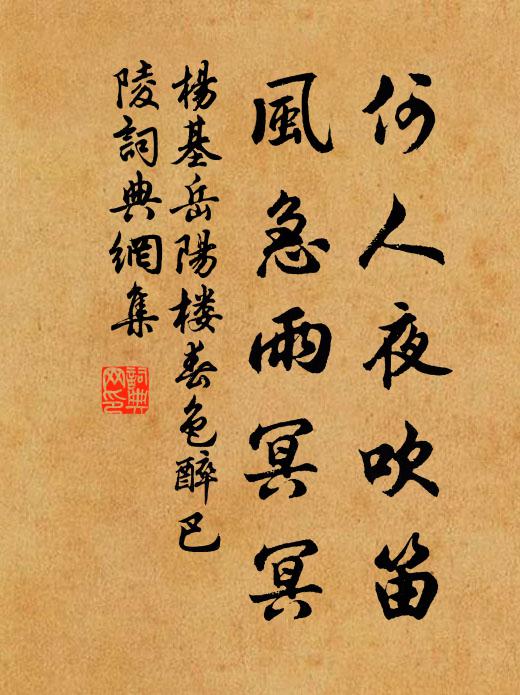 何人夜吹笛
風急雨冥冥
楊基岳陽楼春色醉巴
陵詞典網集
詞典网印